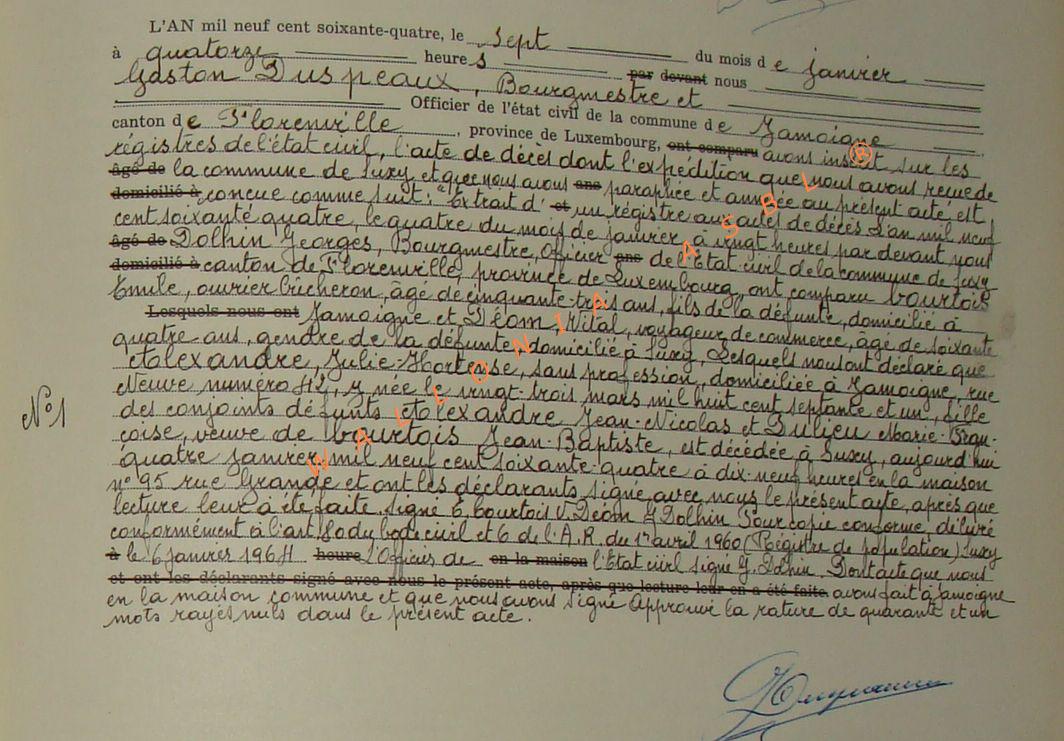 L'AN mil neuf cent soixante-quatre, le sept du mois de janvier
à quatorze heures par devant nous
Gaston Duspeaux, Bourgmestre et
Officier de l'état civil de la commune de Jamoigne
canton de Florenville, province de Luxembourg, ont comparu avons inscrit sur les
régistres de l'état civil, l'acte de décès dont l'expédition que nous avons reçue de
âgé de la commune de Suxy et que nous avons ans paraphée et annexée au présent acte, est
domicilié à conçue comme suit: "Extrait d' et un régistre aux actes de décès L'an mil neuf
cent soixante quatre, le quatre du mois de janvier, à vingt heures par devant nous
âgé de Dolhin Georges, Bourgmestre, Officier ans de l'Etat-civil de la commune de Suxy
domicilié à canton de Florenville, province de Luxembourg, ont comparu Bourtois
Emile, ouvrier bûcheron, âgé de cinquante-trois ans, fils de la défunte, domicilié à
Lesquels nous ont Jamoigne et Déom, Vital, voyageur de commerce, âgé de soixante
quatre ans, gendre de la défunte, domicilié à Suxy, Lesquels nous ont déclaré que
Alexandre, Julie-Hortense, sans profession, domiciliée à Jamoigne, rue
Neuve numéro 42, y née le vingt-trois mars mil huit cent septante et un, fille
N°1
des conjoints défunts Alexandre Jean-Nicolas et Dulieu Marie-Fran-
çoise, veuve de Bourtois Jean-Baptiste, est décédée à Suxy, aujourd'hui
quatre janvier mil neuf cent soixante-quatre à dix-neuf heures en la maison
n° 95 rue Grande et ont les déclarants signé avec nous le présent acte, après que
lecture leur à été faite. signé E. Bourtois V. Déom G Dolhin Pour copie conforme, délivré
conformément à l'art. 80 du code civil et 6 de l'A.R. du 1er avril 1960 (Régistre de population) Suxy
à le 6 janvier 1964 heure L'Officier de en la maison l'Etat civil signé G. Dolhin. Dont acte que nous
et ont les déclarants signé avec nous le présent acte, après que lecture leur en a été faite. avons fait à Jamoigne
en la maison commune et que nous avons signé Approuvé la rature de quarante et un
mots rayés nuls dans le présent acte.
WALLONIA ASBL ®